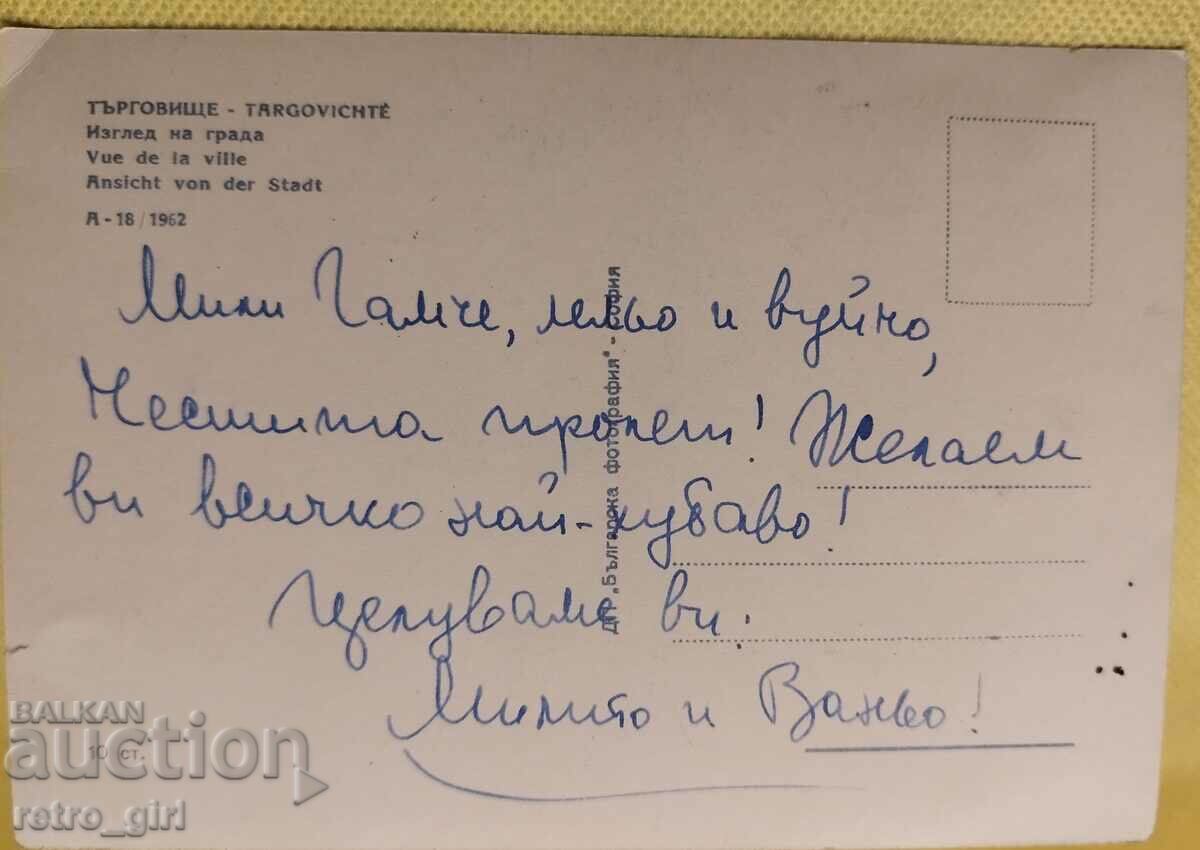 ТЪРГОВИЩЕ - TARGOVICHTÉ
Изглед на града
Vue de la ville
Ansicht von der Stadt
А - 18 / 1962
Мили Гамче, лельо и вуйчо,
Честита пролет! Желаем
ви всичко най-хубаво!
Целуваме ви.
Милито и Ваньо!
ДП „Българска фотография" - София
10 ст.
BALKAN
auction
retro_girl